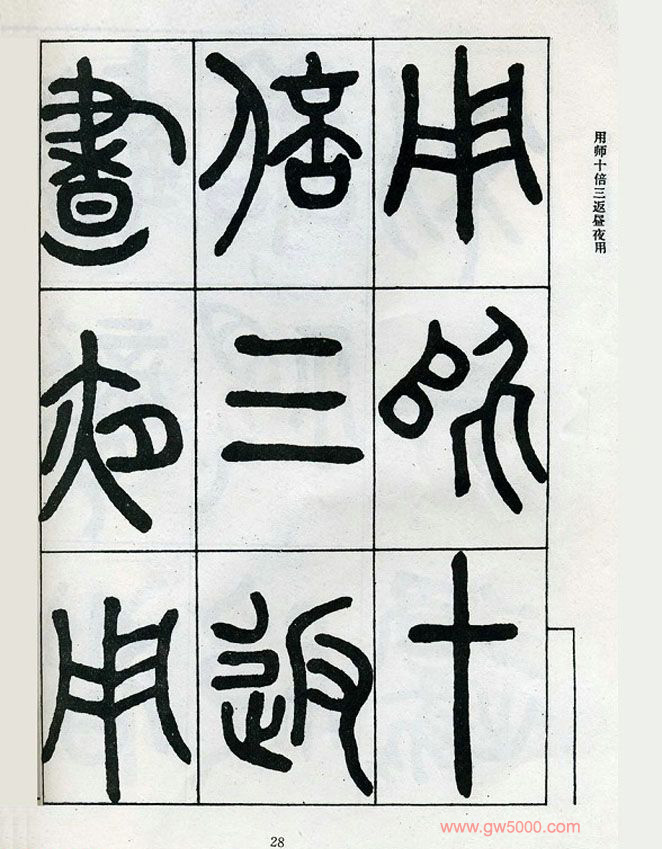 用師十
倍三返
晝夜用
用师十倍三返昼夜用
28
www.gw5000.com